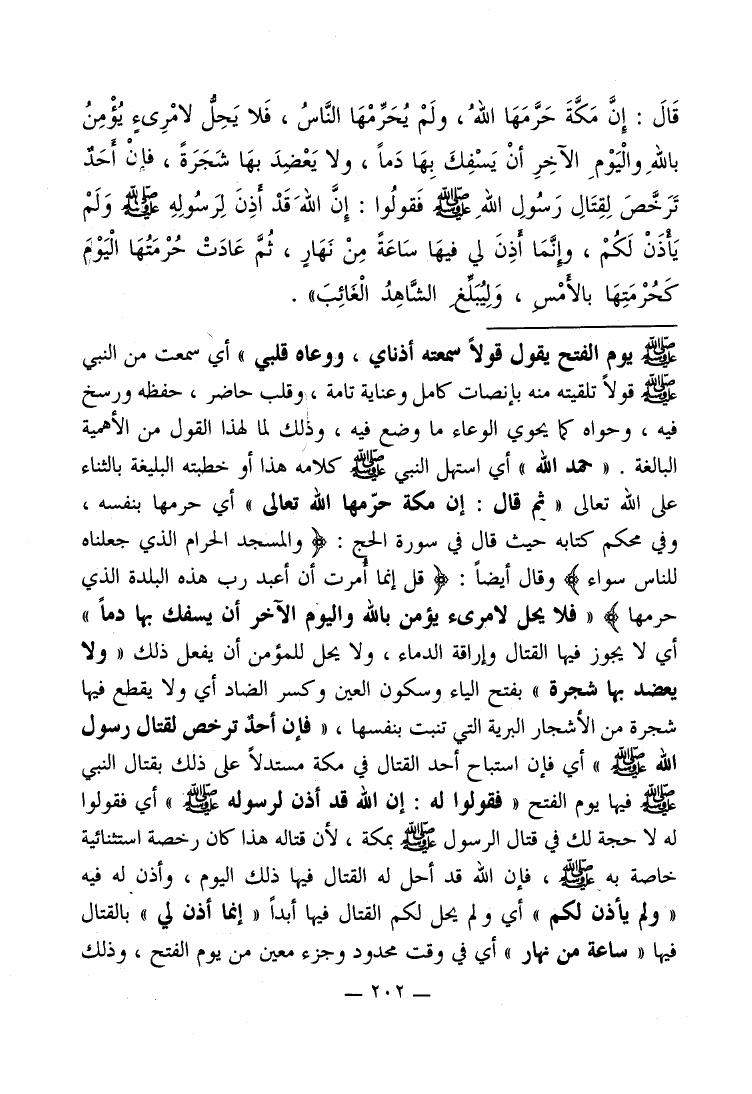 قَالَ : إِنَّ مَكَّةَ حَرَّمَهَا اللهُ ، ولَمْ يُحَرِّمْهَا النَّاسُ ، فَلا يَحِلُّ لامْرِىءٍ يُؤْمِنُ
باللهِ والْيَوْمِ الآخِرِ أنْ يَسْفِكَ بِهَا دَماً ، ولا يَعْضِدَ بهَا شَجَرَةً ، فإنْ أَحَدٌ
تَرَخَّصَ لِقِتَالِ رَسُولِ اللهِ ﷺ فَقولُوا : إنَّ اللهَ قَدْ أَذِنَ لِرَسُولِهِ ﷺ وَلَمْ
يَأْذَنْ لَكُمْ ، وإنَّمَا أَذِنَ لي فيهَا سَاعَةً مِنْ نَهَارٍ ، ثُمَّ عَادَتْ حُرْمَتُهَا الْيَوْمَ
كَحُرْمَتِهَا بالأَمْسِ ، وَلِيُبَلِّغِ الشَّاهِدُ الْغَائِبَ» .
ﷺ يوم الفتح يقول قولاً سمعته أذناي ، ووعاه قلبي » أي سمعت من النبي
ﷺ قولاً تلقيته منه بإنصات كامل وعناية تامة ، وقلب حاضر ، حفظه ورسخ
فيه ، وحواه كما يحوي الوعاء ما وضع فيه ، وذلك لما لهذا القول من الأهمية
البالغة . « حمد الله » أي استهل النبي ﷺ كلامه هذا أو خطبته البليغة بالثناء
على الله تعالى « ثم قال : إن مكة حرّمها الله تعالى » أي حرمها بنفسه ،
وفي محكم كتابه حيث قال في سورة الحج : ﴿ والمسجد الحرام الذي جعلناه
للناس سواء ﴾ وقال أيضاً : ﴿ قل إنما أُمرت أن أعبد رب هذه البلدة الذي
حرمها ﴾ « فلا يحل لامرىء يؤمن بالله واليوم الآخر أن يسفك بها دماً »
أي لا يجوز فيها القتال وإراقة الدماء ، ولا يحل للمؤمن أن يفعل ذلك « ولا
يعضد بها شجرة » بفتح الياء وسكون العين وكسر الضاد أي ولا يقطع فيها
شجرة من الأشجار البرية التي تنبت بنفسها ، « فإن أحدٌ ترخص لقتال رسول
الله ﷺ » أي فإن استباح أحد القتال في مكة مستدلاً على ذلك بقتال النبي
ﷺ فيها يوم الفتح « فقولوا له : إن الله قد أذن لرسوله ﷺ » أي فقولوا
له لا حجة لك في قتال الرسول ﷺ بمكة ، لأن قتاله هذا كان رخصة استثنائية
خاصة به ﷺ ، فإن الله قد أحل له القتال فيها ذلك اليوم ، وأذن له فيه
« ولم يأذن لكم » أي ولم يحل لكم القتال فيها أبداً « إنما أذن لي » بالقتال
فيها « ساعة من نهار » أي في وقت محدود وجزء معين من يوم الفتح ، وذلك
— ٢٠٢ —